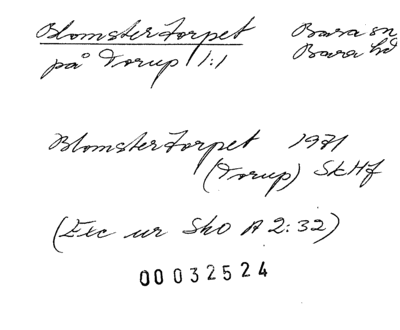 Blomstertorpet Bara sn
på Torup 1:1 Bara hd
Blomstertorpet 1971
(Torup) SkHf
(Exc ur SkO A 2:32)
00032524